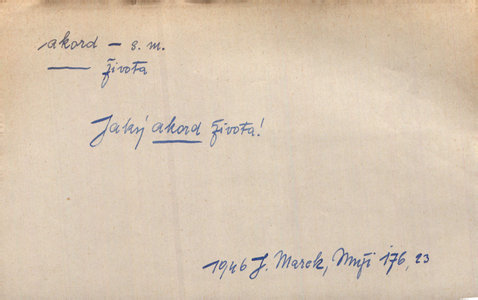 akord - s. m.
života
Jaký akord života!
1946 J. Marek, Muži 176, 23